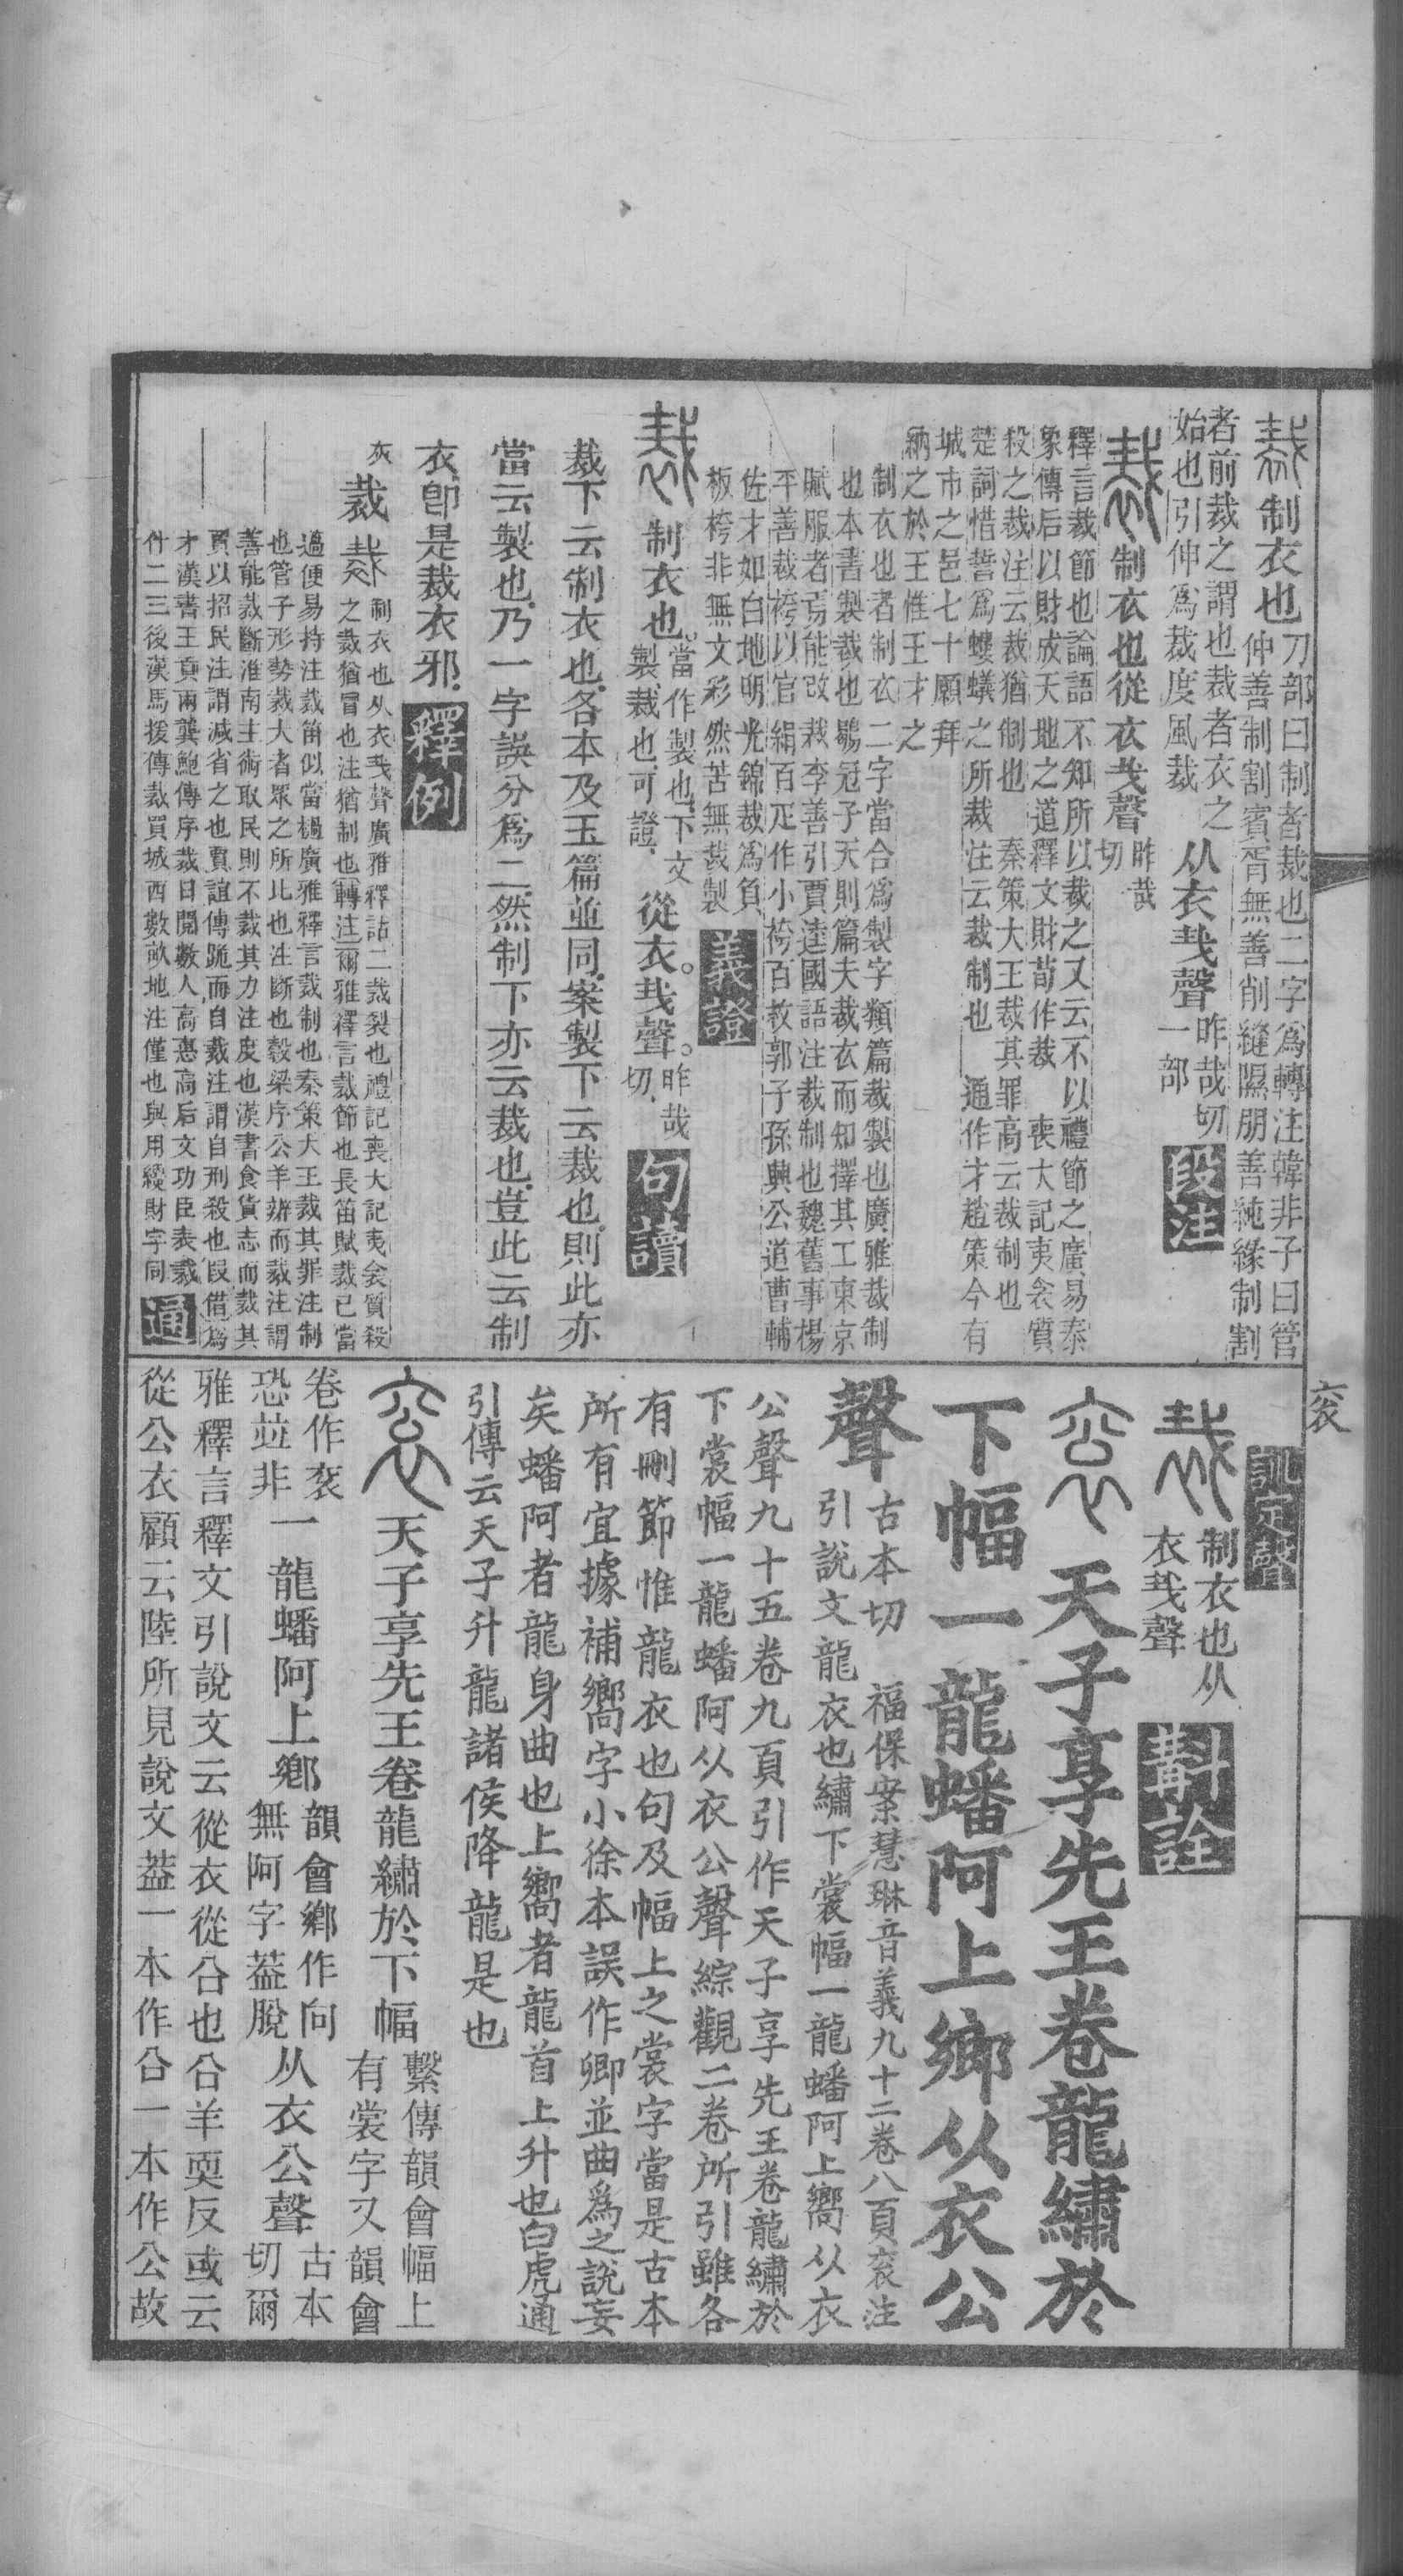 裁制衣也刀部曰制者裁也二字爲轉注韓非子曰管
仲善制割賓胥無善削縫隰朋善純緣制割
者前裁之謂也裁者衣之
始也引伸爲裁度風裁
从衣𢦏聲昨哉切
一部
段注
裁制衣也從衣𢦏聲昨哉
切
釋言裁節也論語不知所以裁之又云不以禮節之廣易泰
象傳后以財成天地之道釋文財荀作裁 喪大記夷衾質
殺之裁注云裁猶制也 秦策大王裁其罪高云裁制也
楚詞惜誓爲螻蟻之所裁注云裁制也 通作才趙策今有
城市之邑七十願拜
納之於王惟王才之
制衣也者制衣二字當合爲製字類篇裁製也廣雅裁制
也本書製裁也鶡冠子天則篇夫裁衣而知擇其工東京
賦服者焉能改裁李善引賈逵國語注裁制也魏舊事楊
平善裁袴以官絹百疋作小袴百枚郭子孫興公道曹輔
佐才如白地明光錦裁爲負
板袴非無文彩然苦無裁製
義證
裁制衣也。當作製也、下文
製、裁也、可證、
從衣。𢦏聲。昨哉
切、
句讀
裁下云制衣也、各本及玉篇並同、案製下云裁也、則此亦
當云製也、乃一字誤分爲二、然制下亦云裁也、豈此云制
衣、卽是裁衣邪、釋例
灰
裁裁制衣也从衣𢦏聲廣雅釋詁二裁裂也禮記喪大記夷衾質殺
之裁猶冒也注猶制也轉注爾雅釋言裁節也長笛賦裁已當
薖便易持注裁笛似當檛廣雅釋言裁制也秦策大王裁其罪注制
也管子形勢裁大者眾之所比也注斷也穀梁序公羊辯而裁注謂
善能裁斷淮南主術取民則不裁其力注度也漢書食貨志而裁其
賈以招民注謂減省之也賈誼傳跪而自裁注謂自刑殺也叚借爲
才漢書王貢兩龔鮑傳序裁日閱數人高惠高后文功臣表裁
什二三後漢馬援傳裁買城西數畝地注僅也與用纔財字同
通
訓定聲
裁制衣也从
衣𢦏聲
斠詮
袞天子享先王卷龍繡於
下幅一龍蟠阿上鄉从衣公
聲古本切 福保案慧琳音義九十二卷八頁袞注
引說文龍衣也繡下裳幅一龍蟠阿上嚮从衣
公聲九十五卷九頁引作天子享先王卷龍繡於
下裳幅一龍蟠阿从衣公聲綜觀二卷所引雖各
有刪節惟龍衣也句及幅上之裳字當是古本
所有宜據補嚮字小徐本誤作卿並曲爲之說妄
矣蟠阿者龍身曲也上嚮者龍首上升也白虎通
引傳云天子升龍諸侯降龍是也
袞天子享先王卷龍繡於下幅繫傳韻會幅上
有裳字又韻會
卷作袞
恐竝非
一龍蟠阿上鄉韻會鄉作向
無阿字葢脫
从衣公聲古本
切爾
雅釋言釋文引說文云從衣從㕣也㕣羊耎反或云
從公衣顧云陸所見說文葢一本作㕣一本作公故
袞